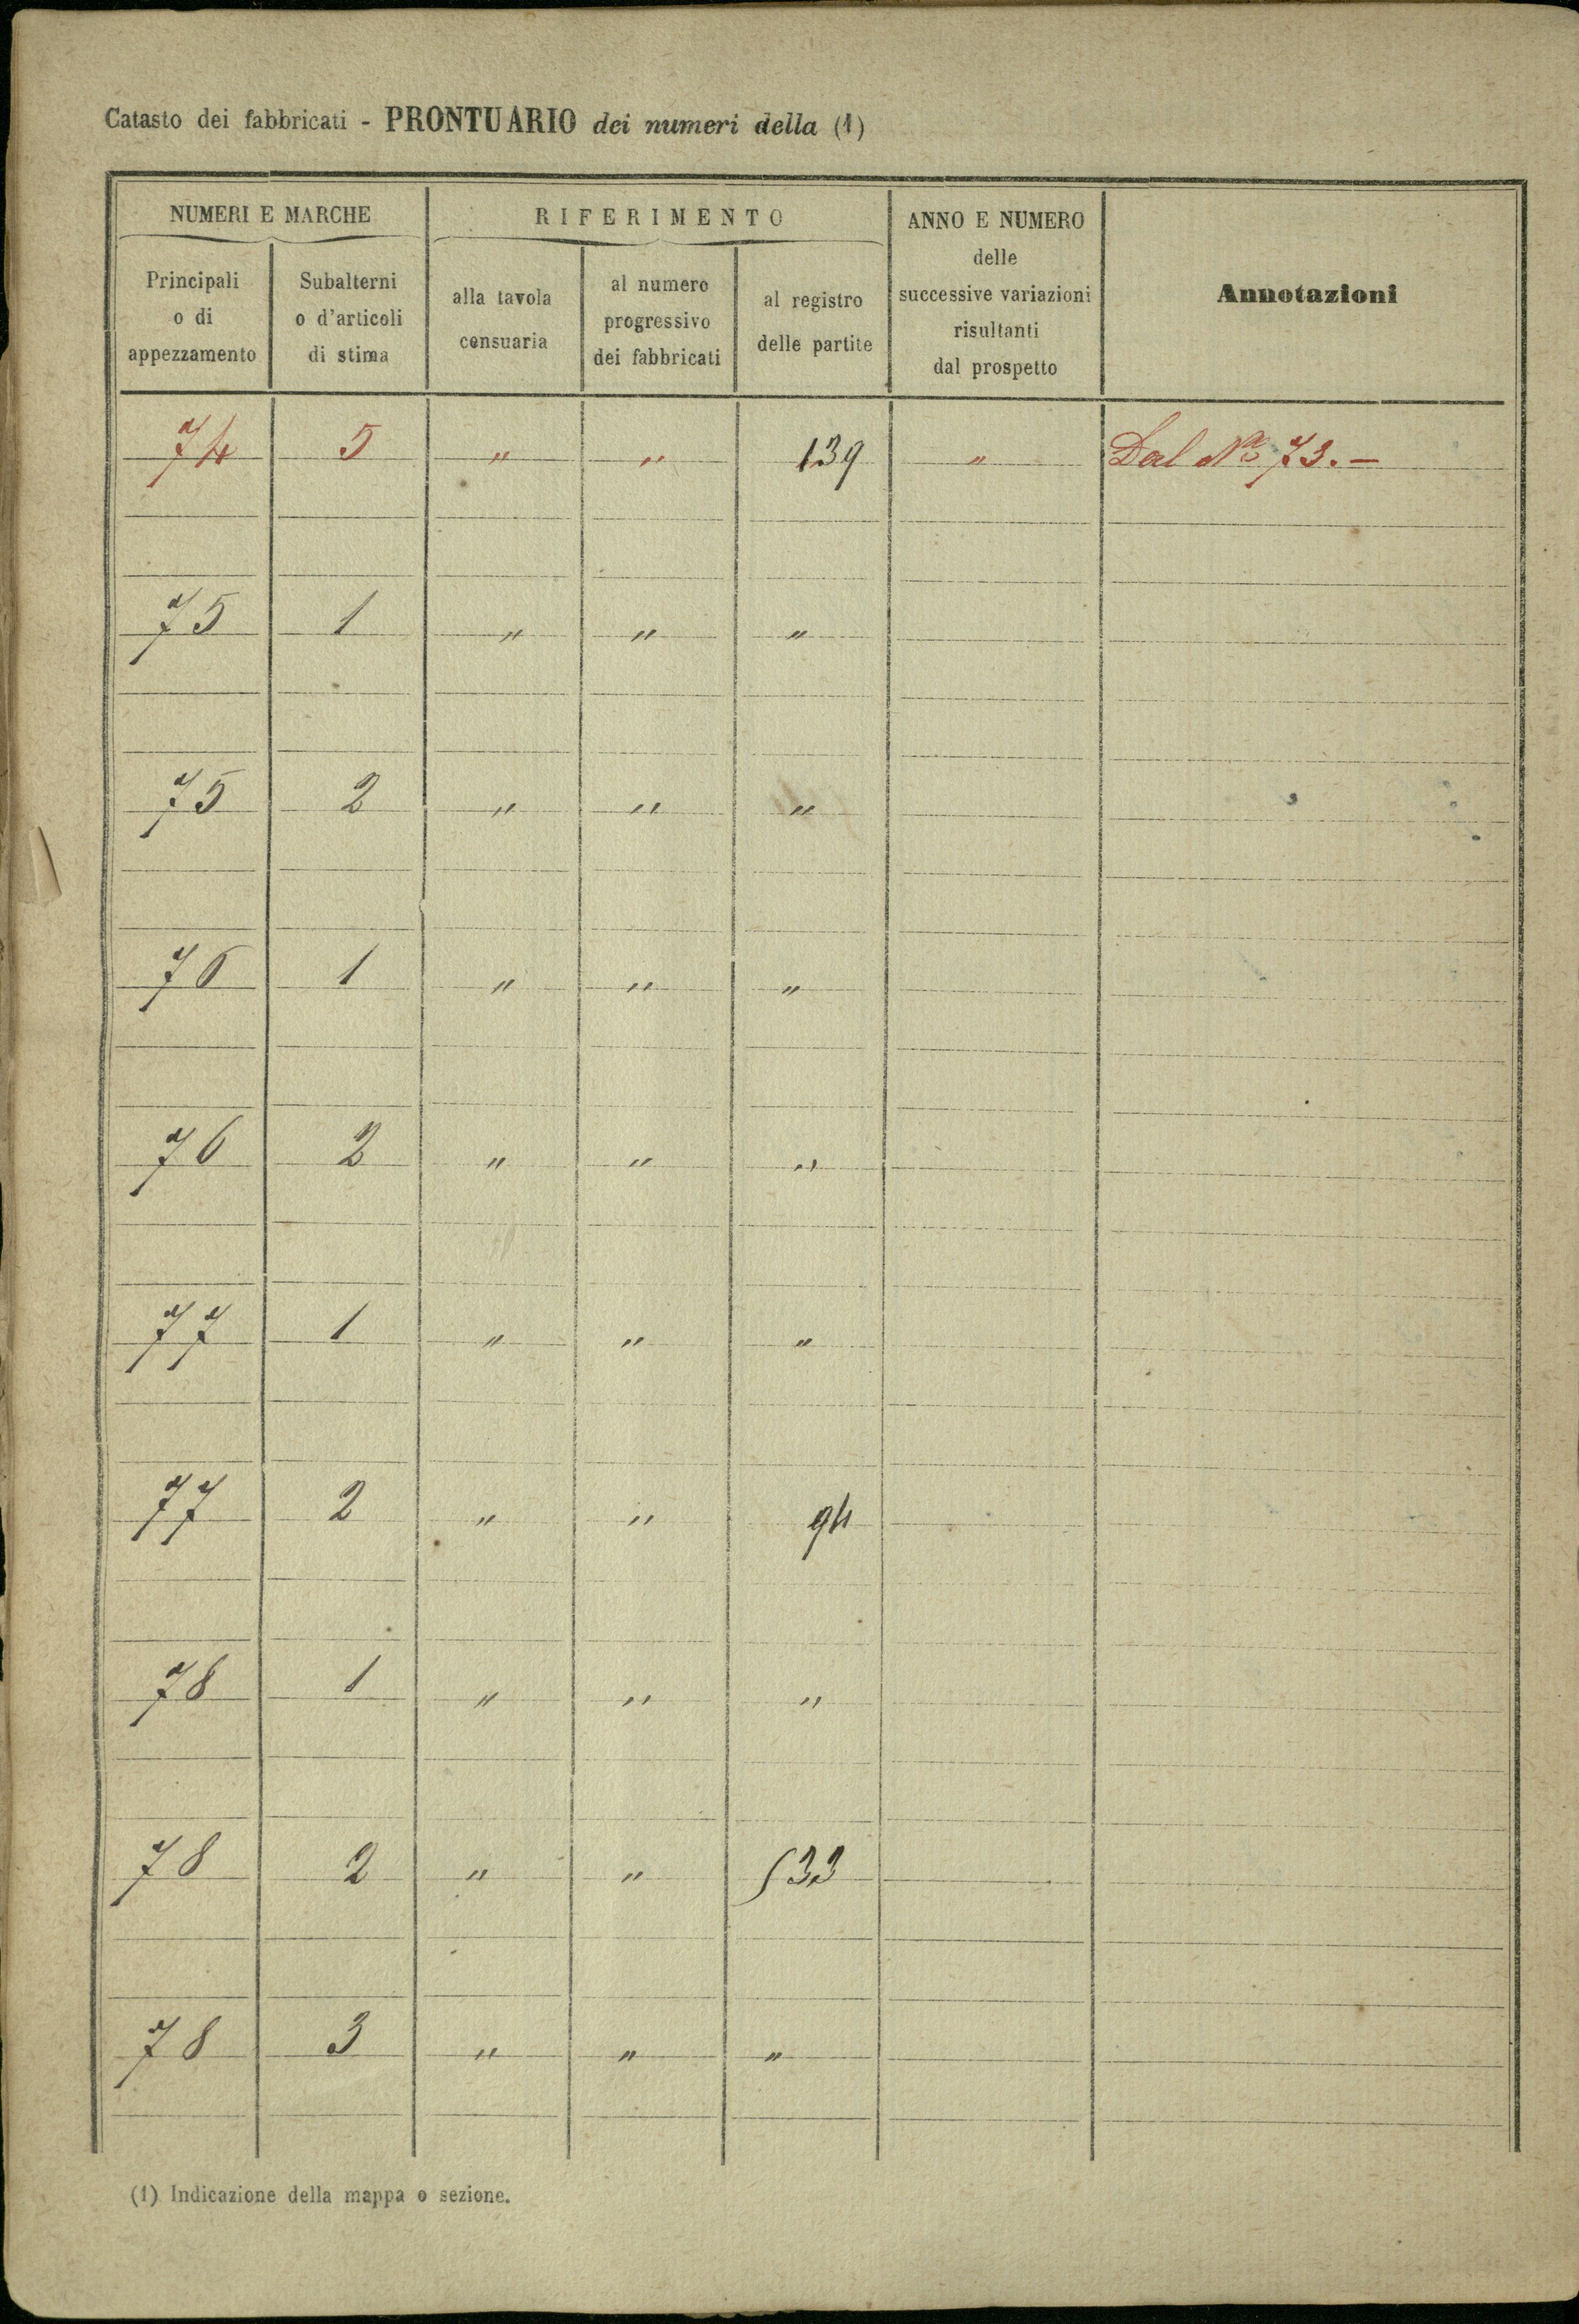 Catasto dei fabbricati - PRONTUARIO dei numeri della (1)
NUMERI E MARCHE
Principali
o di
appezzamento
Subalterni
o d'articoli
di stima
RIFERIMENTO
alla tavola
censuaria
al numero
progressivo
dei fabbricati
al registro
delle partite
ANNO E NUMERO
delle
successive variazioni
risultanti
dal prospetto
Annotazioni
74 5 " " 139 " Dal No 73. —
75 1 " " "
75 2 " " "
76 1 " " "
76 2 " " "
77 1 " " "
77 2 " " 94
78 1 " " "
78 2 " " 533
78 3 " " "
(1) Indicazione della mappa o sezione.